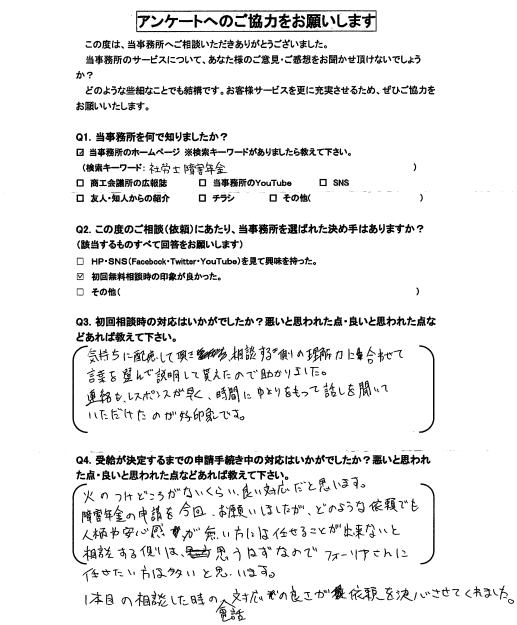 アンケートへのご協力をお願いします
この度は、当事務所へご相談いただきありがとうございました。
当事務所のサービスについて、あなた様のご意見・ご感想をお聞かせ頂けないでしょう
か?
どのような些細なことでも結構です。お客様サービスを更に充実させるため、ぜひご協力を
お願いいたします。
Q1. 当事務所を何で知りましたか?
☑ 当事務所のホームページ ※検索キーワードがありましたら教えて下さい。
(検索キーワード: 社労士 障害年金 )
□ 商工会議所の広報誌 □ 当事務所のYouTube □ SNS
□ 友人・知人からの紹介 □ チラシ □ その他( )
Q2. この度のご相談(依頼)にあたり、当事務所を選ばれた決め手はありますか?
(該当するものすべて回答をお願いします)
□ HP・SNS(Facebook・Twitter・YouTube)を見て興味を持った。
☑ 初回無料相談時の印象が良かった。
□ その他( )
Q3. 初回相談時の対応はいかがでしたか?悪いと思われた点・良いと思われた点な
どあれば教えて下さい。
気持ちに配慮して頂き 相談する側の理解力に合わせて
言葉を選んで説明して貰えたので助かりました。
連絡も、レスポンスが早く、時間にゆとりをもって話しを聞いて
いただけたのが好印象です。
Q4. 受給が決定するまでの申請手続き中の対応はいかがでしたか?悪いと思われ
た点・良いと思われた点などあれば教えて下さい。
火のつけどころがないくらい、良い対応だと思います。
障害年金の申請を今回、お願いしましたが、どのような依頼でも
人柄や安心感が無い方には任せることが出来ないと
相談する側は、思うはずなので フォーリアさんに
任せたい方は多いと思います。
1本目の相談した時の電話対応の良さが依頼を決心させてくれました。